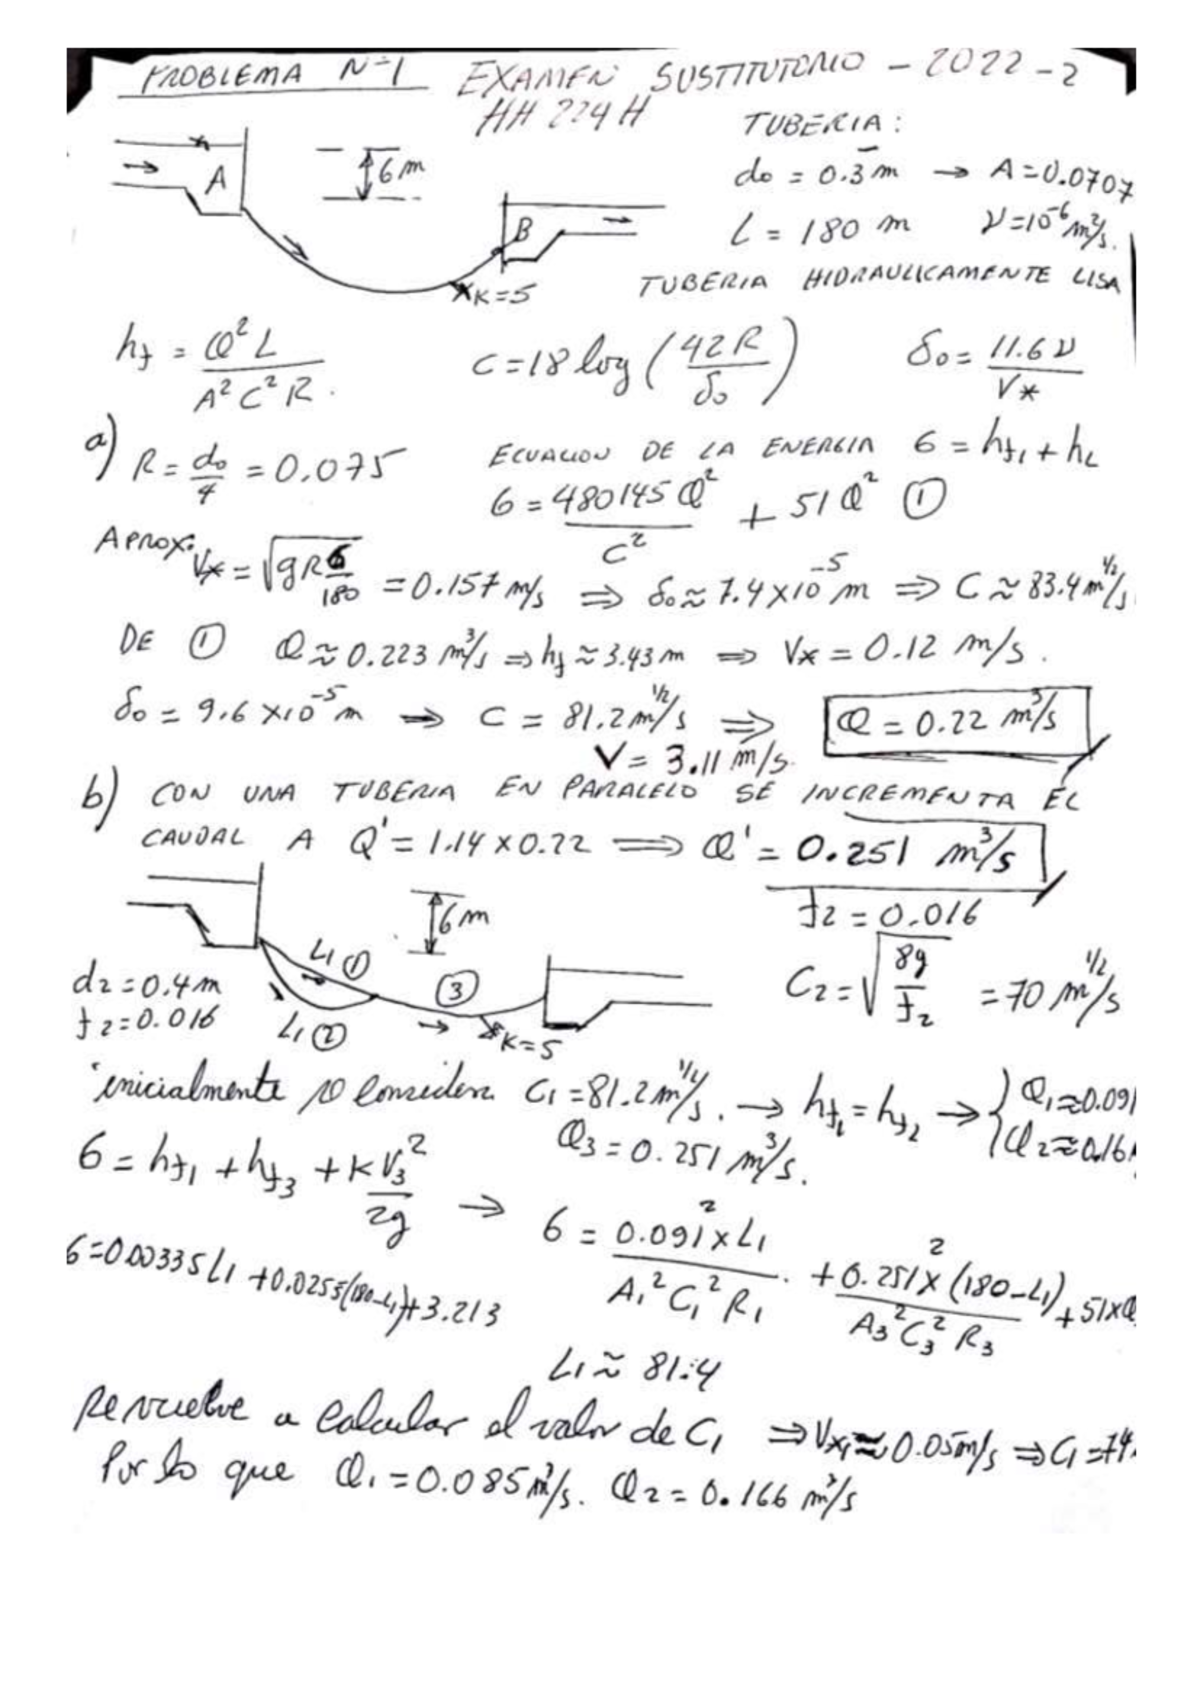 PROBLEMA Nº1 EXAMEN SUSTITUTORIO - 2022-2
HH 224H
TUBERIA:
A
6m
d₀ = 0.3m → A=0.0707
B
L = 180 m ν=10⁻⁶ m²/s.
K=5
TUBERIA HIDRAULICAMENTE LISA
hf = Q²L / A²C²R.
C=18 log (42R / δ₀)
δ₀ = 11.6ν / V*
a) R = d₀/4 = 0.075
ECUACION DE LA ENERGIA 6 = hf₁ + hL
6 = 480145 Q² / C² + 51Q² ①
APROX: V* = √(gR 6/180) = 0.157 m/s ⇒ δ₀ ≈ 7.4x10⁻⁵ m ⇒ C ≈ 83.4 m^1/2/s
DE ① Q ≈ 0.223 m³/s ⇒ hf ≈ 3.43m ⇒ V* = 0.12 m/s.
δ₀ = 9.6x10⁻⁵ m → C = 81.2 m^1/2/s ⇒ Q = 0.22 m³/s
V = 3.11 m/s.
b) CON UNA TUBERIA EN PARALELO SE INCREMENTA EL
CAUDAL A Q' = 1.14 x 0.22 ⇒ Q' = 0.251 m³/s
f2 = 0.016
6m
L1 ①
③
d2 = 0.4m
C2 = √(8g/f2) = 70 m^1/2/s
f2 = 0.016
L1 ②
K=5
inicialmente se considera C1 = 81.2 m^1/2/s. → hf₁ = hf₂ → { Q1≈0.091
Q3 = 0.251 m³/s.
Q2≈0.16
6 = hf₁ + hf₃ + K V3²/2g → 6 = 0.091² x L1 / A1² C1² R1 + 0.251² x (180-L1) / A3² C3² R3 + 51x
6=0.00335L1 + 0.0255(180-L1)+3.213
L1 ≈ 81.4
Se vuelve a calcular el valor de C1 ⇒ V*1 ≈ 0.05m/s ⇒ C1 = 74.
Por lo que Q1 = 0.085 m³/s. Q2 = 0.166 m³/s